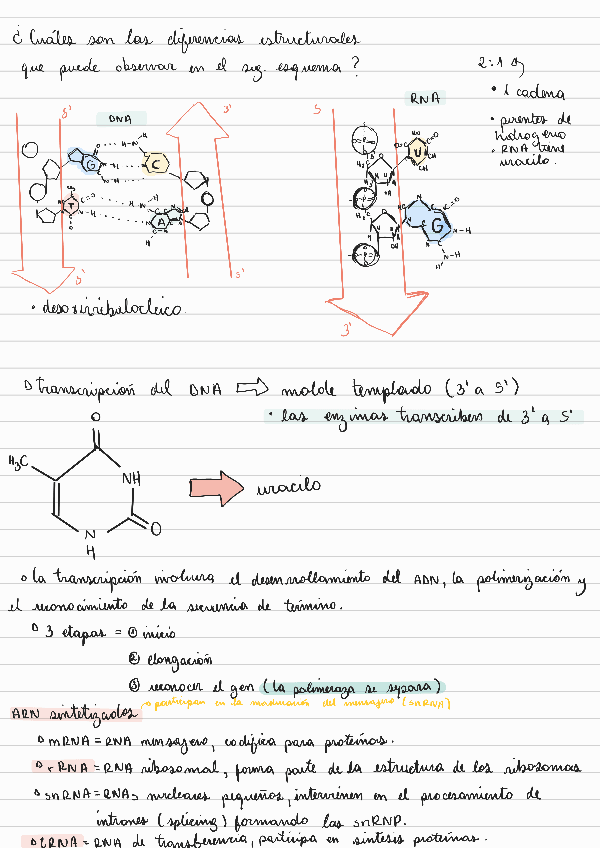 ¿Cuáles son las diferencias estructurales
que puede observar en el sig. esquema?
• 1 cadena
• puentes de
hidrogeno
• RNA tiene
uracilo.
DNA
RNA
5'
3'
5
G
C
T
A
U
G
5'
3'
3'
transcripción del DNA ⇨ molde templado (3' a 5')
• las enzimas transcriben de 3' a 5'
O
H₃C
NH
O
N
H
uracilo
o la transcripción involucra el desenrollamiento del ADN, la polimerización y
el reconocimiento de la secuencia de término.
3 etapas = ① inicio
② elongación
③ reconocer el gen (la polimeraza se separa)
ARN sintetizados
participan en la maduración del mensajero (snRNA)
mRNA = RNA mensajero, codifica para proteínas.
rRNA = RNA ribosomal, forma parte de la estructura de los ribosomas
snRNA = RNAs nucleares pequeños, intervienen en el procesamiento de
intrones (splicing) formando las snRNP.
tRNA = RNA de transferencia, participa en sintesis proteínas.